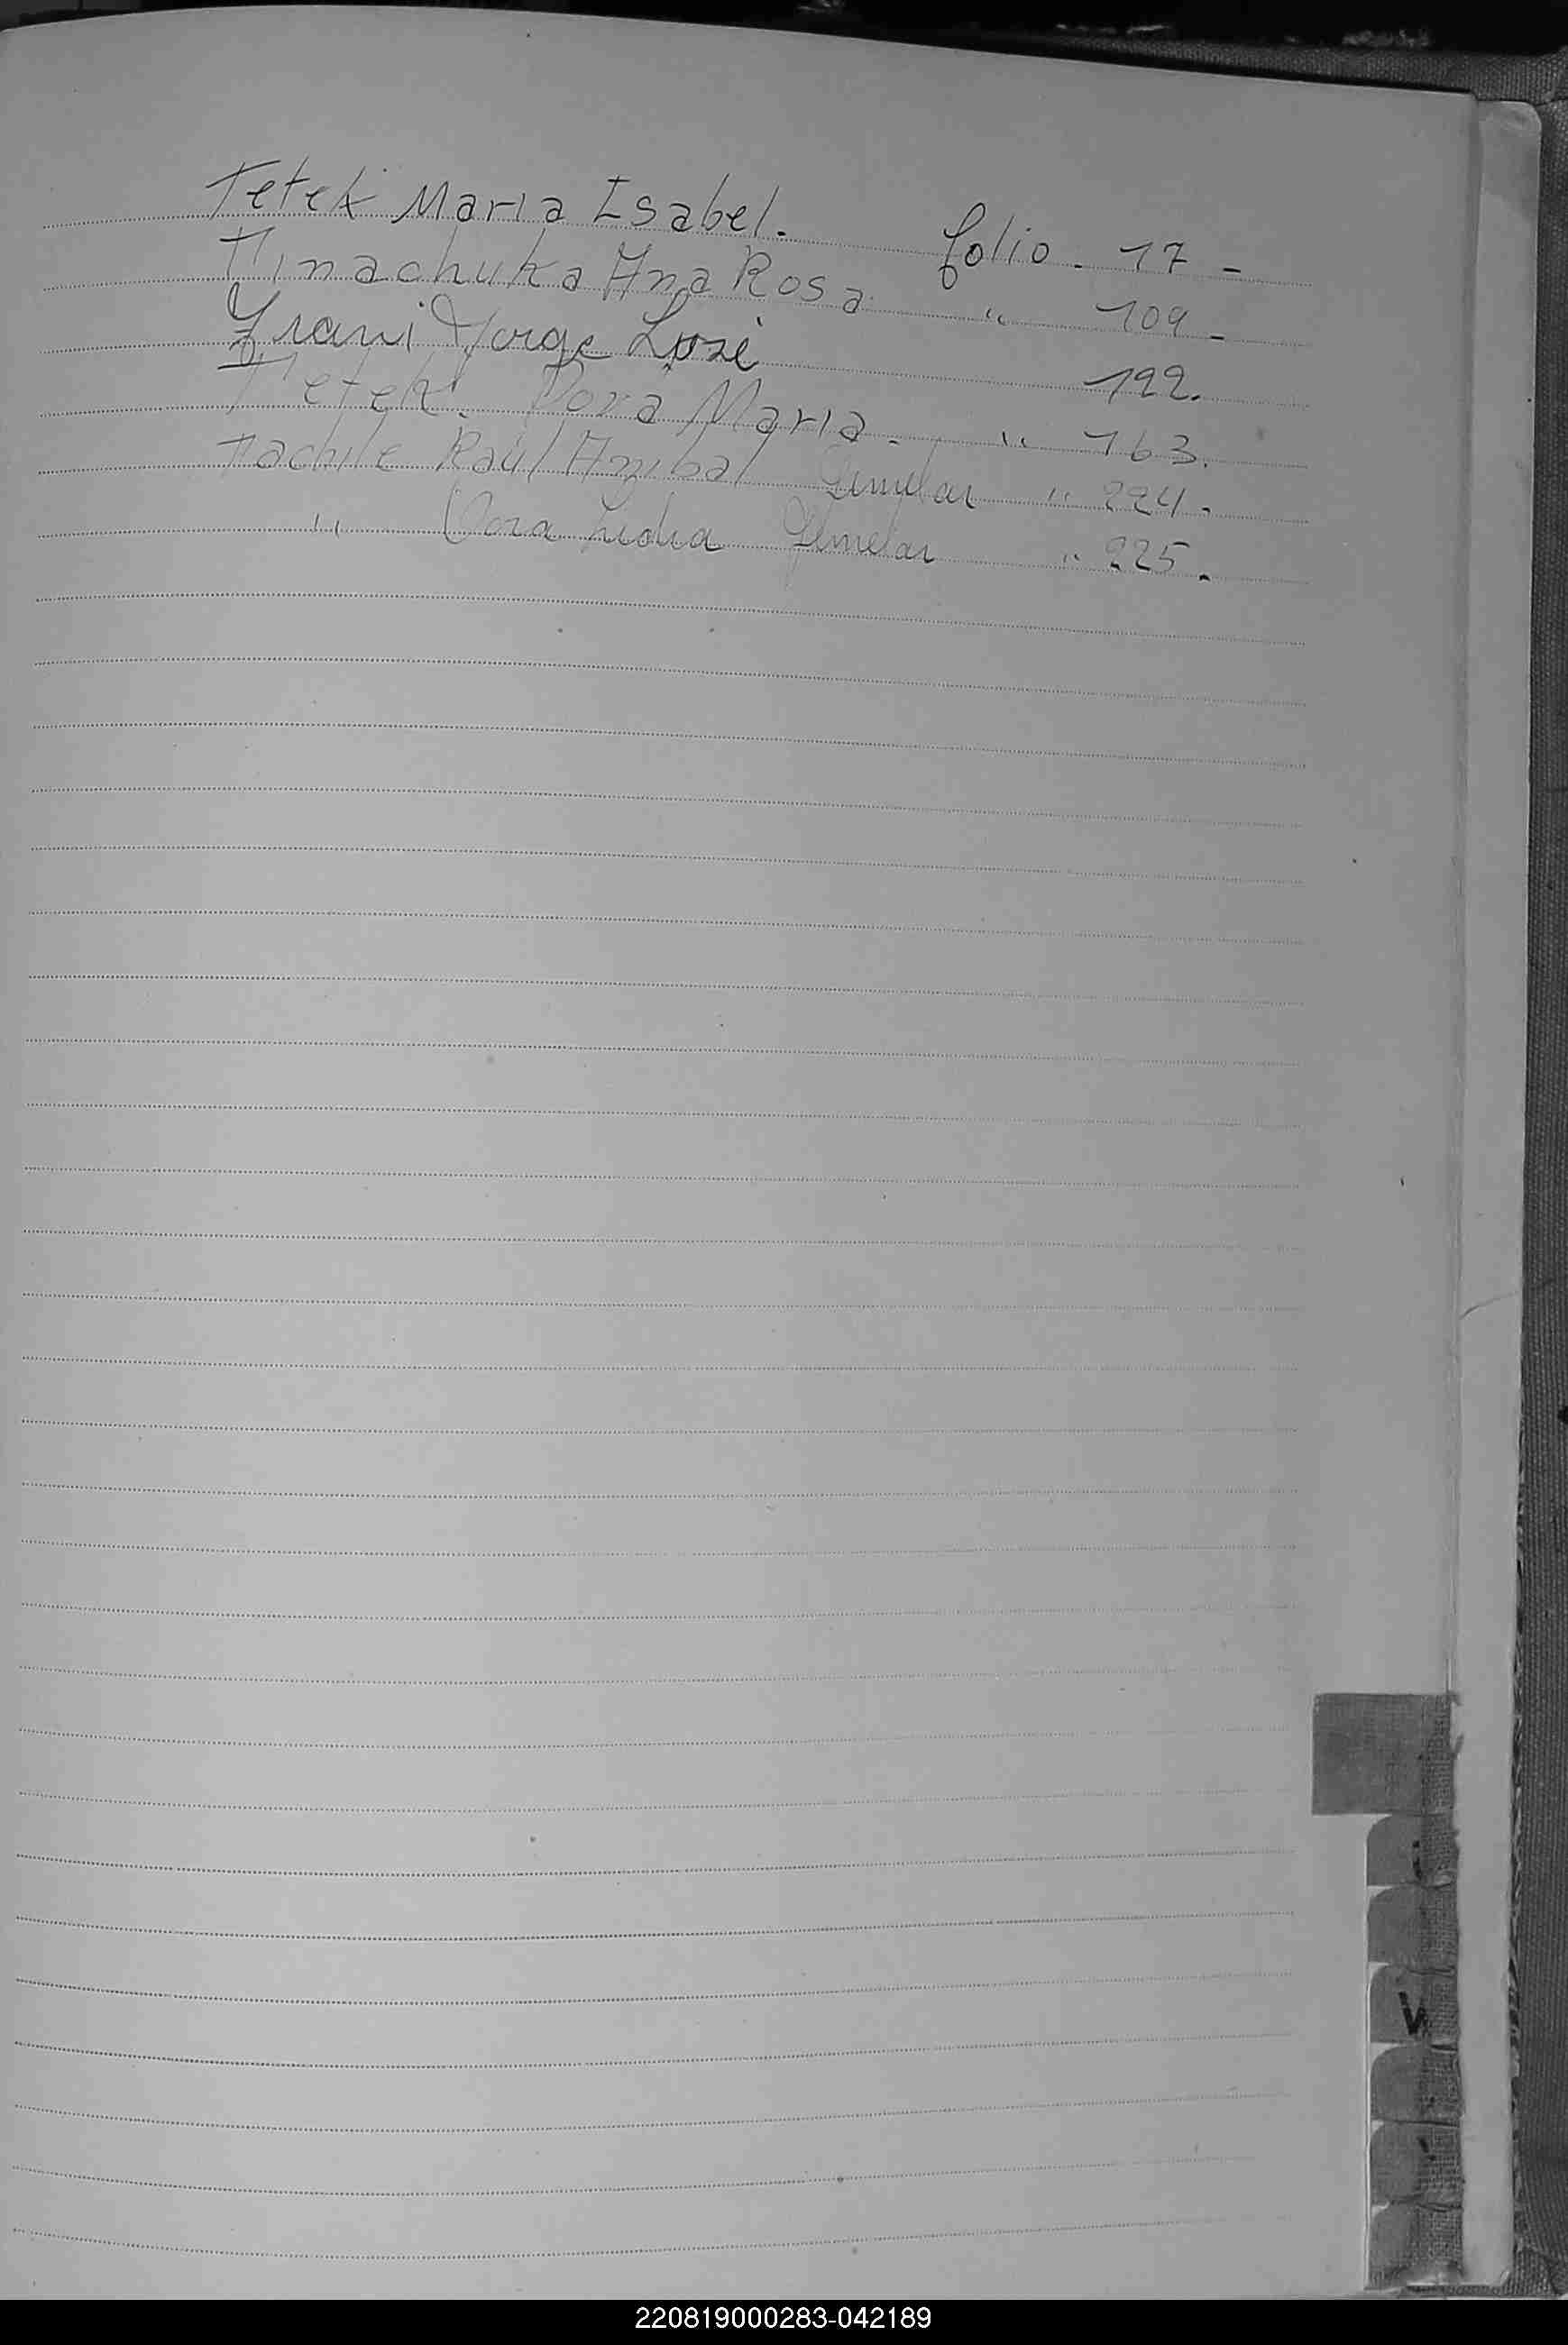 Tetek Maria Isabel. folio - 17 -
Timachuka Ana Rosa " 109 -
Jorge José 122.
Tetek. Dora Maria. " 163.
Tachile Raúl Anibal Gemelar " 224 -
" Dora Lidia Gemelar " 225 -
W
220819000283-042189